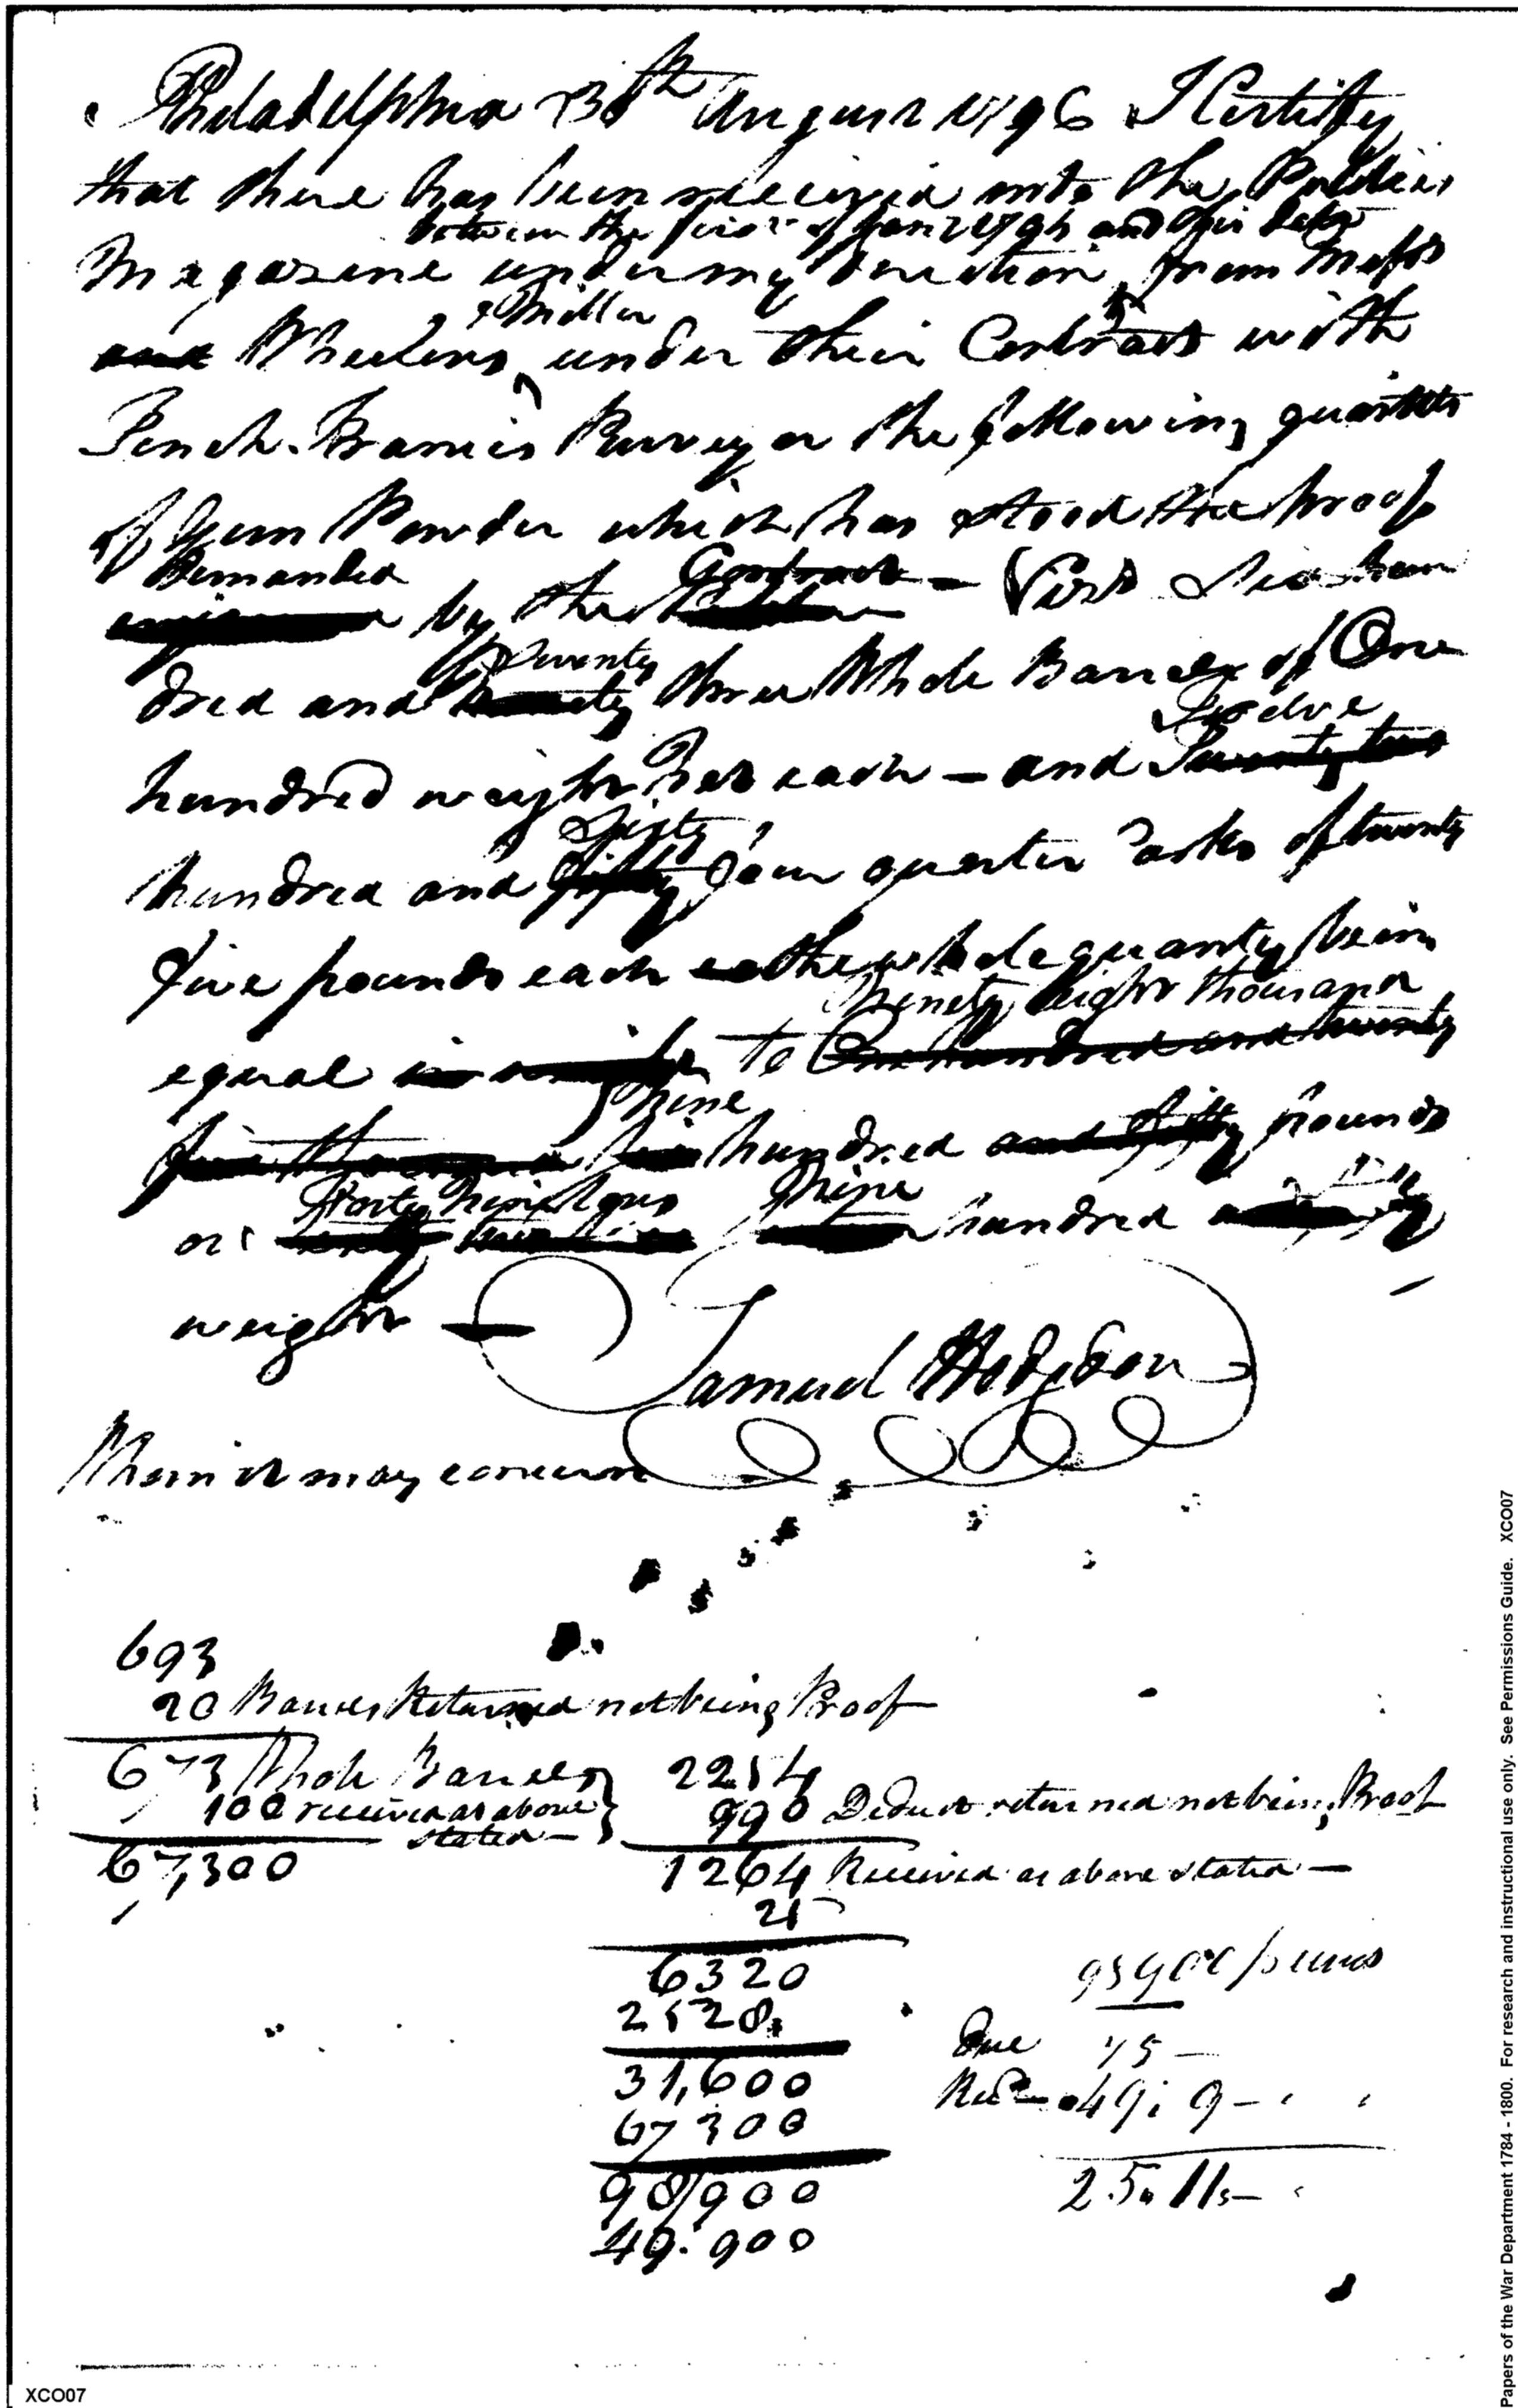 Philadelphia 30th August 1796 I Certify
that there has been received into the Publick
between the first of Jany 1795 and this date
Magazine under my direction, from Messrs
& Miller
and Wheelens, under their Contract with
Tench Francis Purveyor the following quantities
of Gun Powder which has stood the proof
Demanded Contract
by the — Vizt Six hun
Seventy
dred and three Whole Barrels of One
Twelve
hundred weight Nett each — and Twenty two
Sixty
hundred and fifty four quarter Casks of twenty
five pounds each the whole quantity being
Ninety eight thousand
equal to One hundred and twenty
Nine
five thousand hundred and fifty pounds
Forty Nine tons Nine
or hundred
weight —
Samuel Hodgdon
Whom it may concern
693
20 Barrels Returned not being Proof
673 Whole Barrels
100 received as above
stated —
67,300
2254
990 Deduct returned not being Proof
1264 Received as above stated —
25
6320
2528
31,600
67300
98,900
49.900
pounds
Due 75 —
Recd 49.9 —
25.11 —
Papers of the War Department 1784 - 1800. For research and instructional use only. See Permissions Guide. XCO07
XCO07